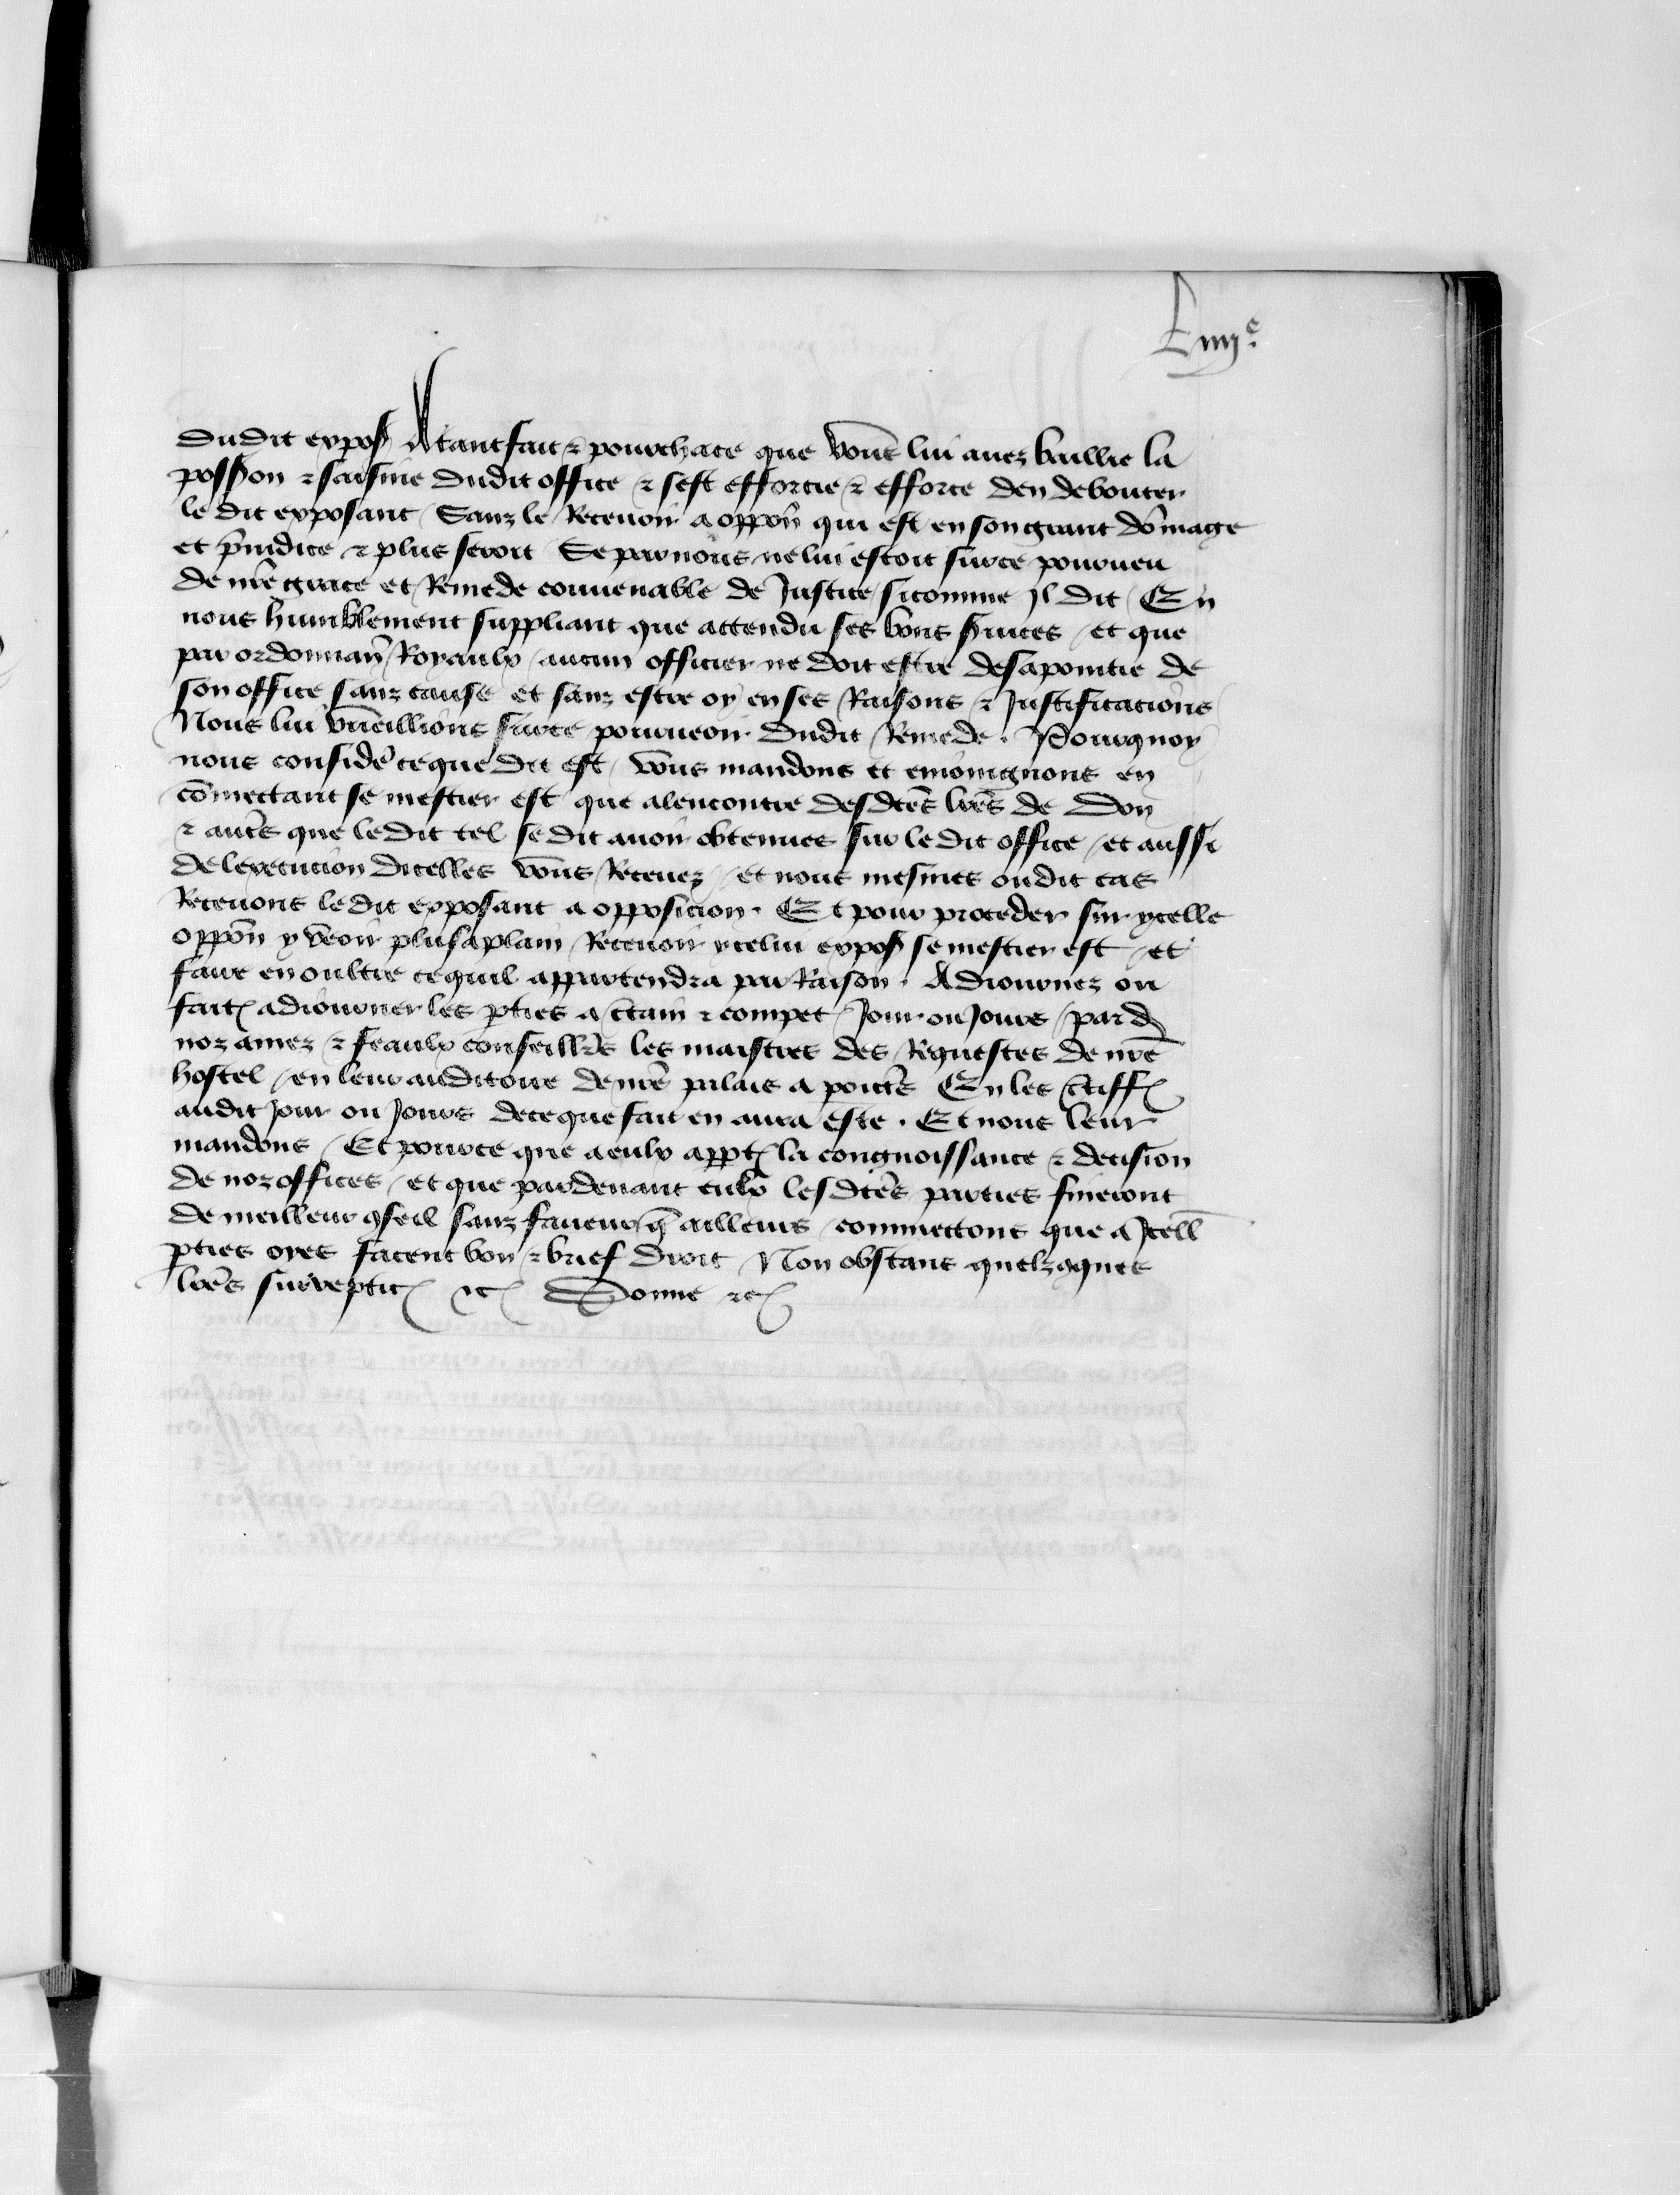 Liiij.e
dudit expos A tant fait & pourchace que vous lui avez baillie la
possion & saisine dudit office & sest efforcie & efforce den debouter
le dit exposant Sanz le Recevoir a oppon qui est en son grant domage
et preiudice & plus seroit Se par nous ne lui estoit surce pourveu
de nre grace et Remede convenable de Justice sicomme Il dit En
nous humblement suppliant que attendu ses bons services et que
par ordonnan Royaulx aucun officier ne doit estre desapointie de
son office sanz cause et sanz estre oy en ses Raisons & Justificacions
Nous lui vueillions surce pourveoir dudit Remede. Pourquoy
nous considere ceque dit est vous mandons et enioingnons en
comectant se mestier est que alencontre desdctes lres de don
& autres que ledit tel se dit avoir obtenues sur le dit office et aussi
de lexecucion dicelles vous Recevez et nous mesmes oudit cas
Recevons ledit exposant a opposicion. Et pour proceder sur ycelle
oppon y veoir plus aplain Recevoir ycelui expos se mestier est et
faire en oultre cequil appartendra par Raison. Adiournez ou
fait adiourner les pties a ctain & compet Jour ou Jours par d
noz amez & feaulx conseillrs les maistres des Requestes de nre
hostel en leur auditoire de nre palais a poictrs En les ctiff
audit Jour ou Jours deceque fait en aura este. Et nous leur
mandons Et pource que a eulx appt la congnoissance & decision
de noz offices et que pardevant eulx lesdctes parties fineront
de meilleur qseil sanz faveur q ailleurs commettons que a Icell
pties oyes facent bon & brief droit Non obstant quelzqques
lres surreptic &c Donne &c